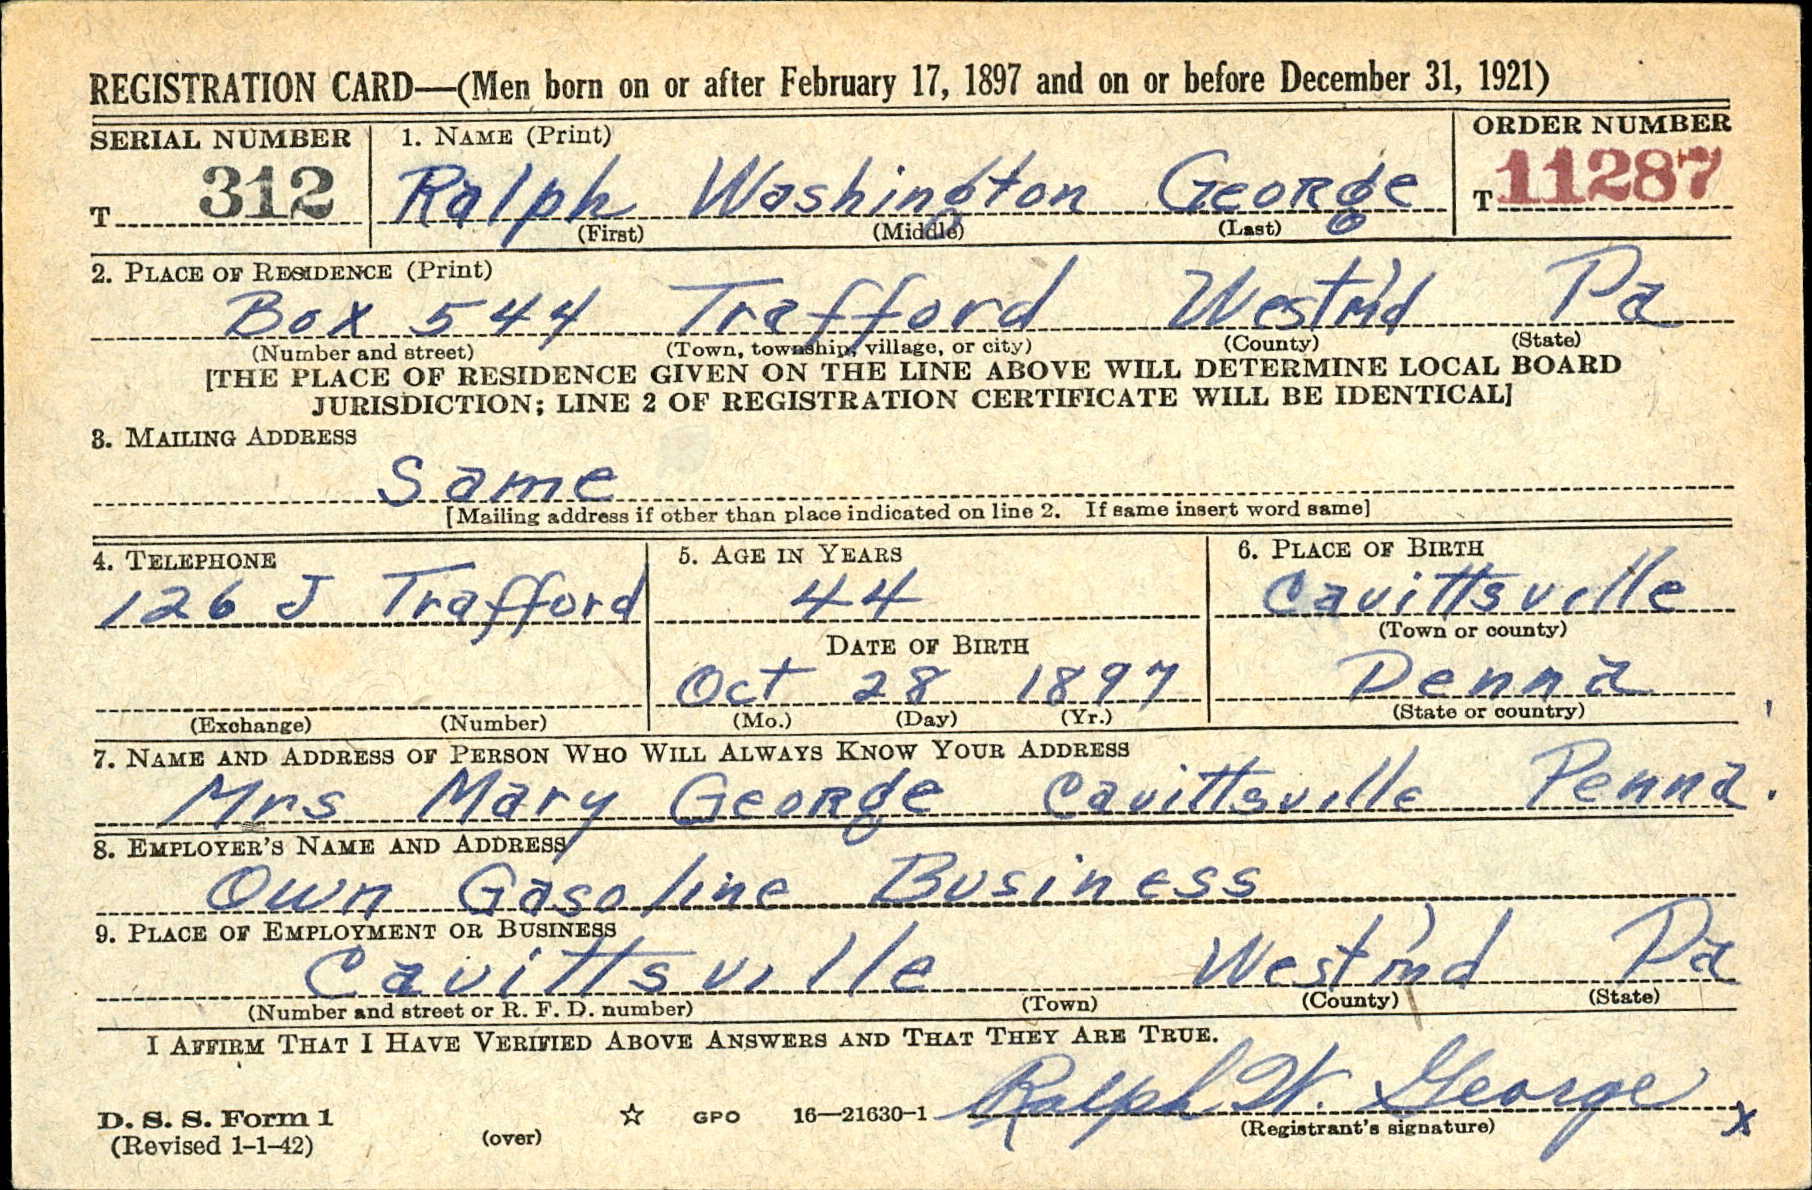 REGISTRATION CARD—(Men born on or after February 17, 1897 and on or before December 31, 1921)
SERIAL NUMBER 1. NAME (Print) ORDER NUMBER
T 312 Ralph Washington George T 11287
(First) (Middle) (Last)
2. PLACE OF RESIDENCE (Print)
Box 544 Trafford Westm'd Pa
(Number and street) (Town, township, village, or city) (County) (State)
[THE PLACE OF RESIDENCE GIVEN ON THE LINE ABOVE WILL DETERMINE LOCAL BOARD
JURISDICTION; LINE 2 OF REGISTRATION CERTIFICATE WILL BE IDENTICAL]
3. MAILING ADDRESS
Same
[Mailing address if other than place indicated on line 2. If same insert word same]
4. TELEPHONE 5. AGE IN YEARS 6. PLACE OF BIRTH
126 J Trafford 44 Cavittsville
(Town or county)
DATE OF BIRTH
Oct 28 1897 Penna
(Exchange) (Number) (Mo.) (Day) (Yr.) (State or country)
7. NAME AND ADDRESS OF PERSON WHO WILL ALWAYS KNOW YOUR ADDRESS
Mrs Mary George Cavittsville Penna.
8. EMPLOYER'S NAME AND ADDRESS
Own Gasoline Business
9. PLACE OF EMPLOYMENT OR BUSINESS
Cavittsville Westm'd Pa
(Number and street or R. F. D. number) (Town) (County) (State)
I AFFIRM THAT I HAVE VERIFIED ABOVE ANSWERS AND THAT THEY ARE TRUE.
Ralph W. George x
D. S. S. Form 1 ☆ GPO 16—21630-1 (Registrant's signature)
(Revised 1-1-42) (over)